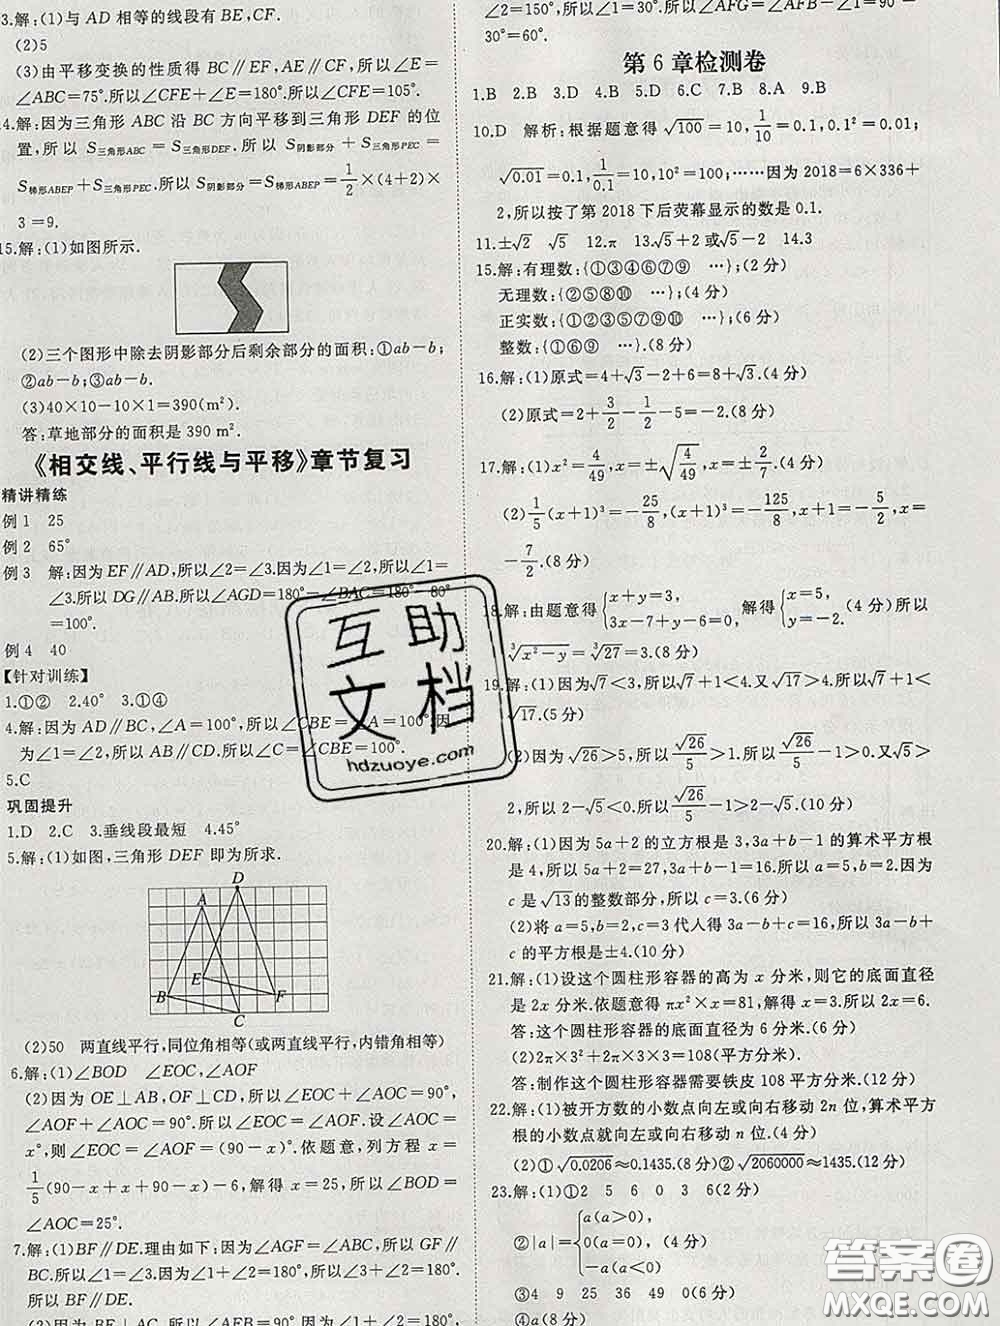 3.解:(1)与 AD 相等的线段有 BE,CF.
(2)5
(3)由平移变换的性质得 BC∥EF,AE∥CF,所以∠E=
∠ABC=75°.所以∠CFE+∠E=180°.所以∠CFE=105°.
14.解:因为三角形 ABC 沿 BC 方向平移到三角形 DEF 的位
置,所以 S三角形ABC=S三角形DEF.所以 S阴影部分+S三角形PEC=
S梯形ABEP+S三角形PEC.所以 S阴影部分=S梯形ABEP=1/2×(4+2)×
3=9.
15.解:(1)如图所示.
(2)三个图形中除去阴影部分后剩余部分的面积:①ab-b;
②ab-b;③ab-b.
(3)40×10-10×1=390(m²).
答:草地部分的面积是 390 m².
《相交线、平行线与平移》章节复习
精讲精练
例1 25
例2 65°
例3 解:因为 EF∥AD,所以∠2=∠3.因为∠1=∠2,所以∠1=
∠3.所以 DG∥AB.所以∠AGD=180°-∠BAC=180°-80°
=100°.
例4 40
【针对训练】
1.①② 2.40° 3.①④
4.解:因为 AD∥BC,∠A=100°,所以∠CBE=∠A=100°.因
为∠1=∠2,所以 AB∥CD.所以∠C=∠CBE=100°.
5.C
巩固提升
1.D 2.C 3.垂线段最短 4.45°
5.解:(1)如图,三角形 DEF 即为所求.
D
A
E
B
F
C
(2)50 两直线平行,同位角相等(或两直线平行,内错角相等)
6.解:(1)∠BOD ∠EOC,∠AOF
(2)因为 OE⊥AB,OF⊥CD,所以∠EOC+∠AOC=90°,
∠AOF+∠AOC=90°.所以∠EOC=∠AOF.设∠AOC=
x°,则∠EOC=∠AOF=(90-x)°.依题意,列方程 x=
1/5(90-x+x+90-x)-6,解得 x=25,所以∠BOD=
∠AOC=25°.
7.解:(1)BF∥DE.理由如下:因为∠AGF=∠ABC,所以 GF∥
BC.所以∠1=∠3.因为∠1+∠2=180°,所以∠3+∠2=180°.
所以 BF∥DE.
(2)因为 BF⊥AC,所以∠AFB=90°.因为∠1+∠2=180°,
∠2=150°,所以∠1=30°.所以∠AFG=∠AFB-∠1=90°-
30°=60°.
第6章检测卷
1.B 2.B 3.D 4.B 5.D 6.C 7.B 8.A 9.B
10.D 解析:根据题意得 √100=10,1/10=0.1,0.1²=0.01;
√0.01=0.1,1/0.1=10,10²=100;……因为 2018=6×336+
2,所以按了第 2018 下后荧幕显示的数是 0.1.
11.±√2 √5 12.π 13.√5+2 或√5-2 14.3
15.解:有理数:{①③④⑥⑦⑨ …};(2分)
无理数:{②⑤⑧⑩ …};(4分)
正实数:{①③⑤⑥⑦⑧⑨⑩ …};(6分)
整数:{①⑥⑨ …}.(8分)
16.解:(1)原式=4+√3-2+6=8+√3.(4分)
(2)原式=2+3/2-1/2-5=-2.(8分)
17.解:(1)x²=4/49,x=±√(4/49),x=±2/7.(4分)
(2)1/5(x+1)³=-25/8,(x+1)³=-125/8,x+1=-5/2,x=
-7/2.(8分)
18.解:由题意得{x+y=3, 3x-7+y-6=0; 解得{x=5, y=-2. (4分)所以
∛(x²-y)=∛27=3.(8分)
19.解:(1)因为√7<3,所以√7+1<4.又√17>4.所以√7+1<
√17.(5分)
(2)因为 √26>5,所以√26/5>1.所以√26/5-1>0.又√5>
2,所以 2-√5<0.所以√26/5-1>2-√5.(10分)
20.解:(1)因为 5a+2 的立方根是 3,3a+b-1 的算术平方根
是 4,所以 5a+2=27,3a+b-1=16.所以 a=5,b=2.因为
c 是√13的整数部分,所以 c=3.(6分)
(2)将 a=5,b=2,c=3 代人得 3a-b+c=16,所以 3a-b+
c 的平方根是±4.(10分)
21.解:(1)设这个圆柱形容器的高为 x 分米,则它的底面直径
是 2x 分米.依题意得 πx²×x=81,解得 x=3.所以 2x=6.
答:这个圆柱形容器的底面直径为 6 分米.(6分)
(2)2π×3²+2π×3×3=108(平方分米).
答:制作这个圆柱形容器需要铁皮 108 平方分米.(12分)
22.解:(1)被开方数的小数点向左或向右移动 2n 位,算术平方
根的小数点就向左或向右移动 n 位.(4分)
(2)①√0.0206≈0.1435.(8分)②√2060000≈1435.(12分)
23.解:(1)①2 5 6 0 3 6(2分)
②|a|={a(a>0), 0(a=0), -a(a<0) (4分)
③4 9 25 36 49 0(6分)
④a(8分)
互助
文档
hdzuoye.com
答案圈
MXQE.COM